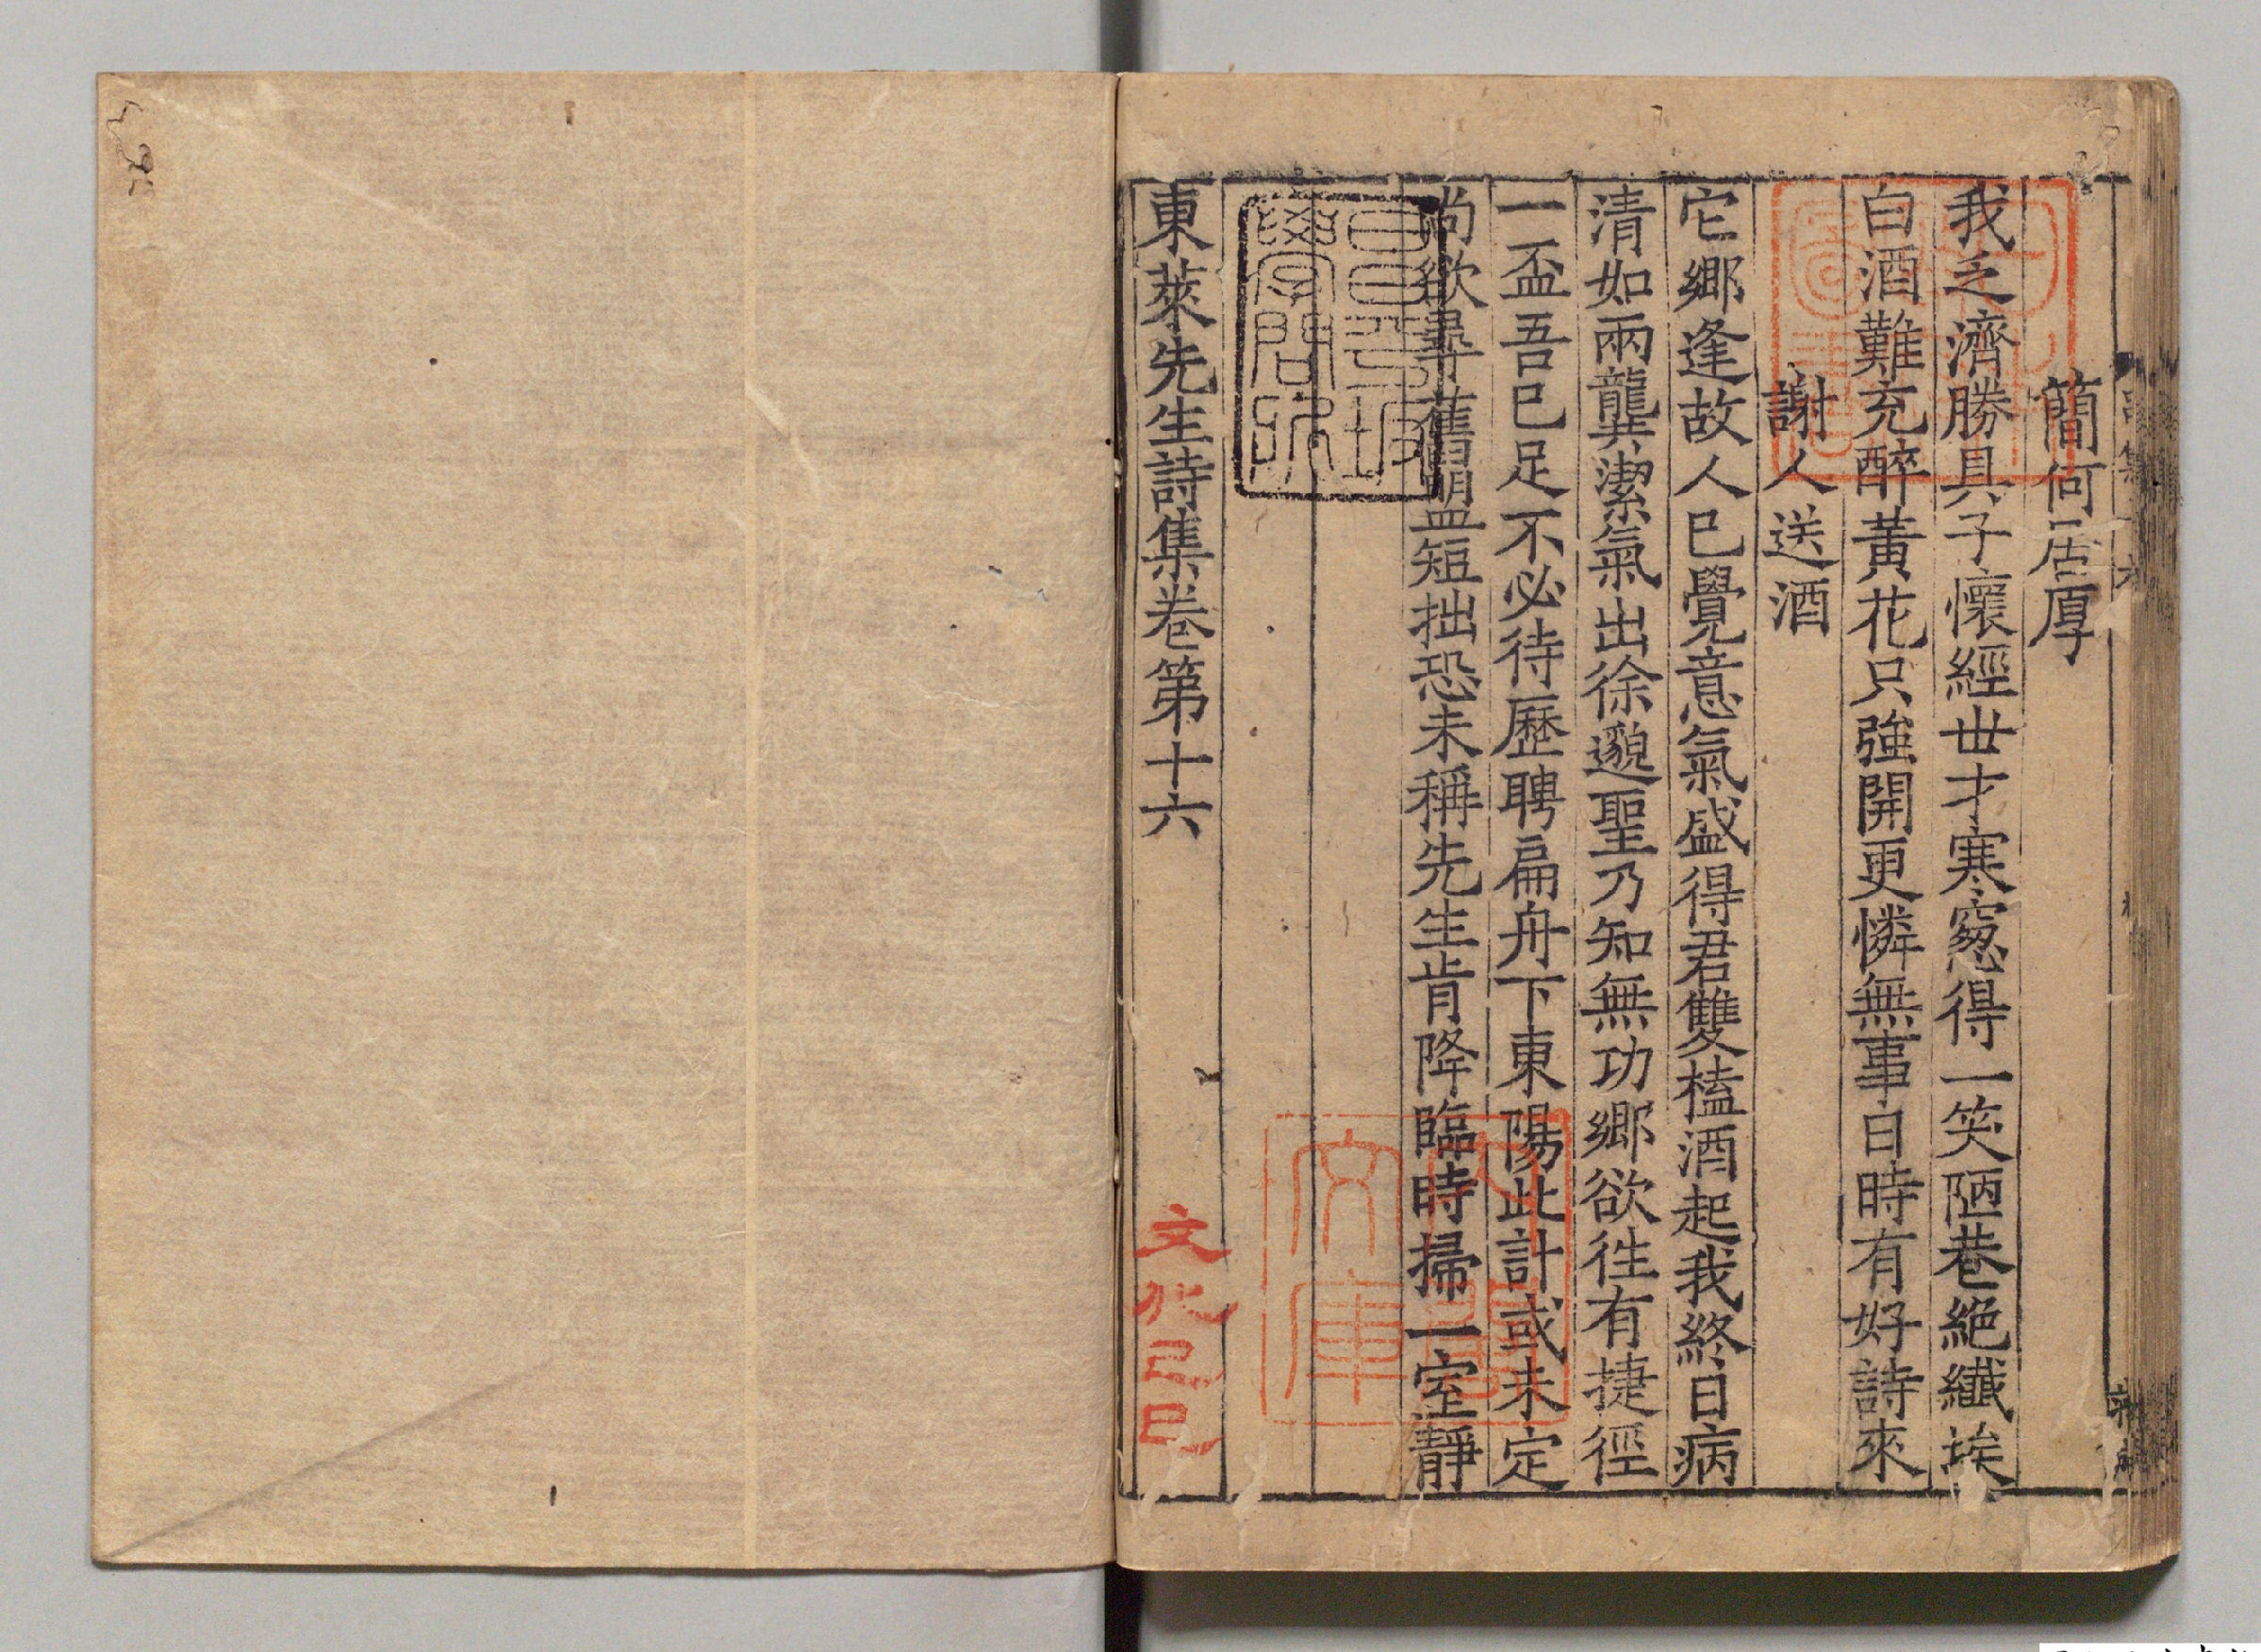 簡何居厚
我乏濟勝具子懷經世才寒窓得一笑陋巷絶纖埃
白酒難充醉黃花只強開更憐無事日時有好詩來
謝人送酒
它鄉逢故人已覺意氣盛得君雙榼酒起我終日病
清如兩龔潔氣出徐邈聖乃知無功鄉欲徃有捷徑
一盃吾已足不必待歷聘扁舟下東陽此計或未定
尚欲尋舊盟短拙恐未稱先生肯降臨時掃一室靜
昌平坂
學問所
文庫
東萊先生詩集卷第十六
文化己巳